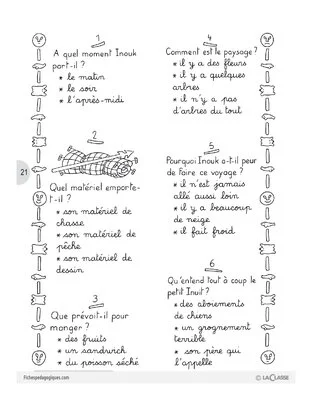 1
A quel moment Inouk
part-il ?
* le matin
* le soir
* l'après-midi
2
Quel matériel emporte-
t-il ?
* son matériel de
chasse
* son matériel de
pêche
* son matériel de
dessin
3
Que prévoit-il pour
manger ?
* des fruits
* un sandwich
* du poisson séché
4
Comment est le paysage ?
* il y a des fleurs
* il y a quelques
arbres
* il n'y a pas
d'arbres du tout
5
Pourquoi Inouk a-t-il peur
de faire ce voyage ?
* il n'est jamais
allé aussi loin
* il y a beaucoup
de neige
* il fait froid
6
Qu'entend tout à coup le
petit Inuit ?
* des aboiements
de chiens
* un grognement
terrible
* son père qui
l'appelle
21
Fichespedagogiques.com
© LA CLASSE